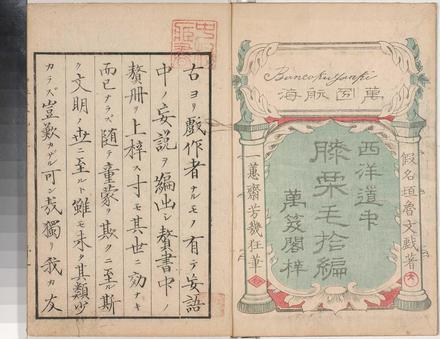 Bancoku kankai
萬国航海
西洋道中
膝栗毛拾編
萬笈閣梓
假名垣魯文戯著
一蕙齋芳幾狂筆
古ヨリ戯作者ナルモノ有テ妄語
中ノ妄説ヲ編出シ贅書中ノ
贅冊ヲ上梓ス寸モ其世ニ効ナキ
而已ナラズ随テ童蒙ヲ欺クニ至ル斯
ク文明ノ世ニ至ルト雖モ未タ其類少
カラズ豈歎カザル可ン哉獨リ我カ友